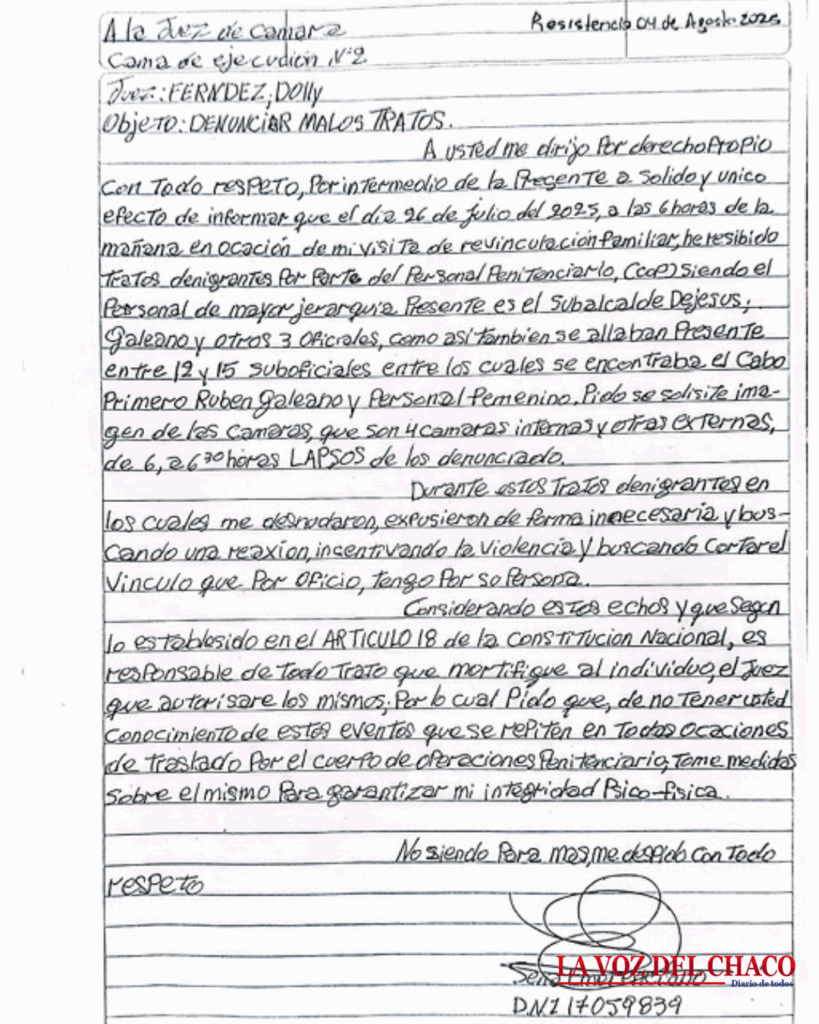 A la Juez de Camara
Resistencia 04 de Agost. 2025
Cama de ejecudión N°2
Juez: FERNDEZ, Dolly
Objeto: DENUNCIAR MALOS TRATOS.
A usted me dirijo Por derecho Propio
Con Todo respeto, Por intermedio de la Presente a Solido y unico
efecto de informar que el dia 26 de julio del 2025, a las 6 horas de la
mañana en ocación de mi visita de revinculación familiar, he resibido
Tratos denigrantes Por Parte del Personal Penitenciario, (cop) siendo el
Personal de mayor jerarquia Presente es el Subalcalde Dejesus,
Galeano y otros 3 oficiales, como asi tambien se allaban Presente
entre 12 y 15 suboficiales entre los cuales se encontraba el Cabo
Primero Ruben Galeano y Personal femenino. Pido se solisite ima-
gen de las camaras, que son 4 camaras internas y otras externas,
de 6, a 6 30 horas LAPSOS de los denunciado.
Durante estos Tratos denigrantes en
los cuales me desnudaron, expusieron de forma innecesaria y bus-
cando una reaxion, incentivando la violencia y buscando Cortar el
Vinculo que Por oficio, tengo Por so Persona.
Considerando estos echos y que segun
lo establesido en el ARTICULO 18 de la Constitucion Nacional, es
responsable de Todo Trato que mortifique al individuo, el Juez
que autorisare los mismos; Por lo cual Pido que, de no Tener usted
Conocimiento de estos eventos que se repiten en Todas ocaciones
de traslado Por el cuerpo de operaciones Penitenciario, Tome medidas
Sobre el mismo Para garantizar mi integridad Psico-fisica.
No siendo Para mas, me despido con Todo
respeto
LA VOZ DEL CHACO
Diario de todos
D.N.I 17059839